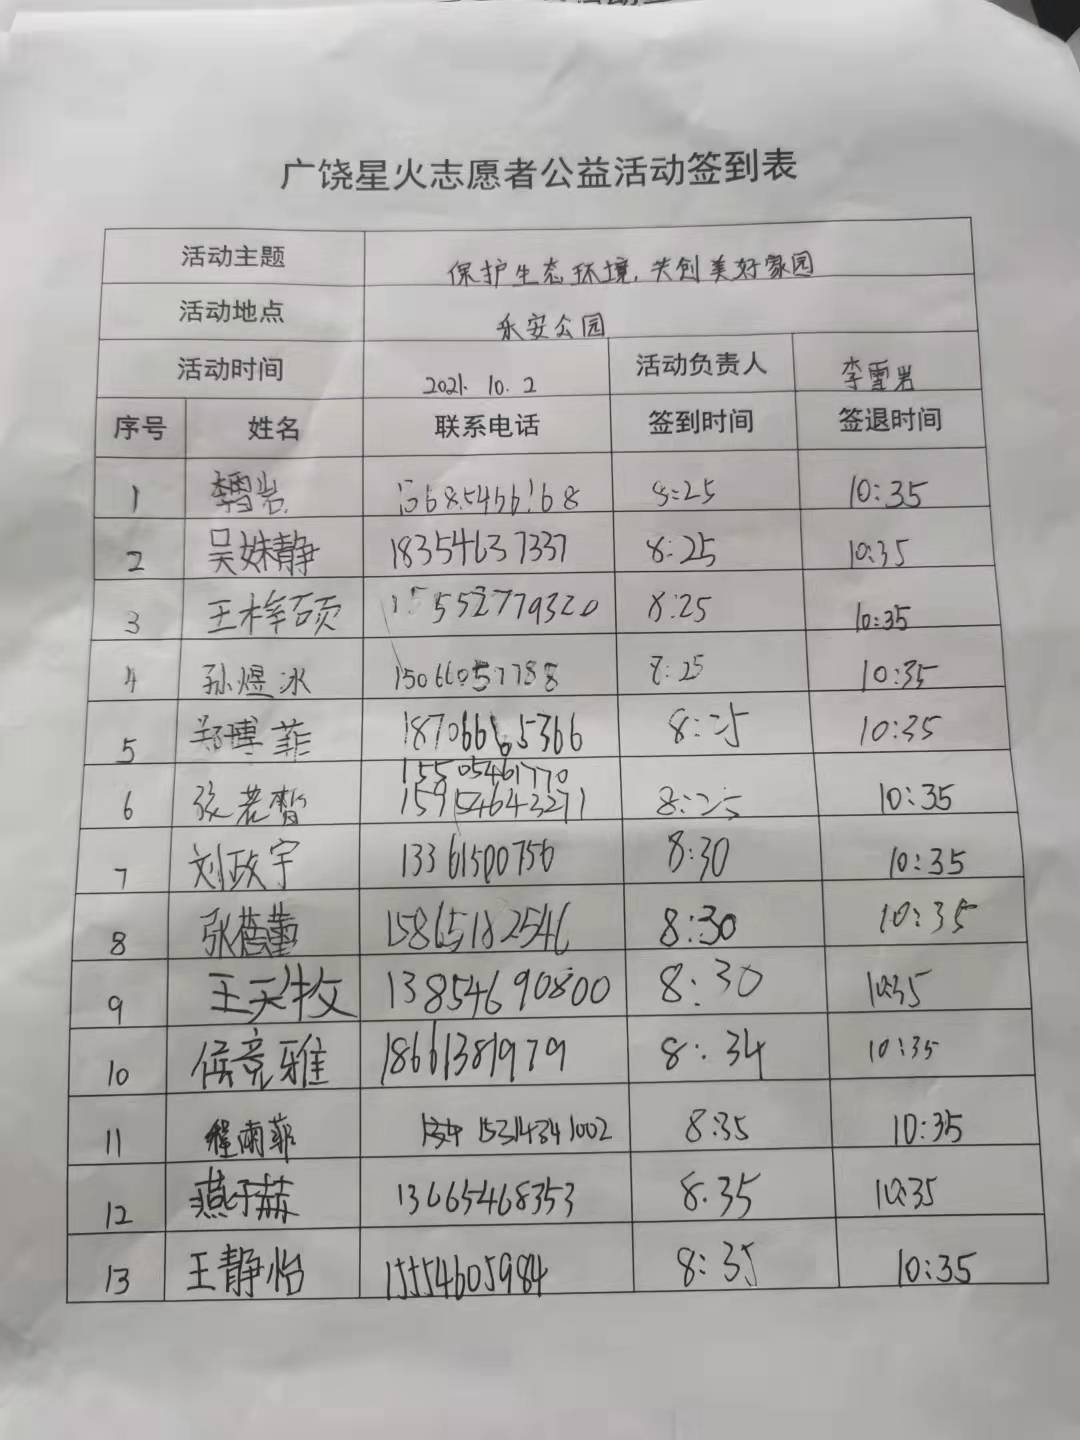 广饶星火志愿者公益活动签到表
活动主题 保护生态环境,共创美好家园
活动地点 永安公园
活动时间 2021.10.2 活动负责人 李雪岩
序号 姓名 联系电话 签到时间 签退时间
1 李雪岩 8:25 10:35
2 吴姝静 18354637337 8:25 10:35
3 王梓硕 15552779320 8:25 10:35
4 孙煜冰 15066057788 8:25 10:35
5 郑博菲 18706665366 8:25 10:35
15505461770
6 张若晳 15954643271 8:25 10:35
7 刘政宇 13361500756 8:30 10:35
8 张蓓蕾 15865182546 8:30 10:35
9 王天牧 13854690800 8:30 10:35
10 侯竞雅 18661381979 8:34 10:35
11 程雨菲 15314341002 8:35 10:35
12 燕子赫 13665468353 8.35 10:35
13 王静怡 15554605984 8:35 10:35